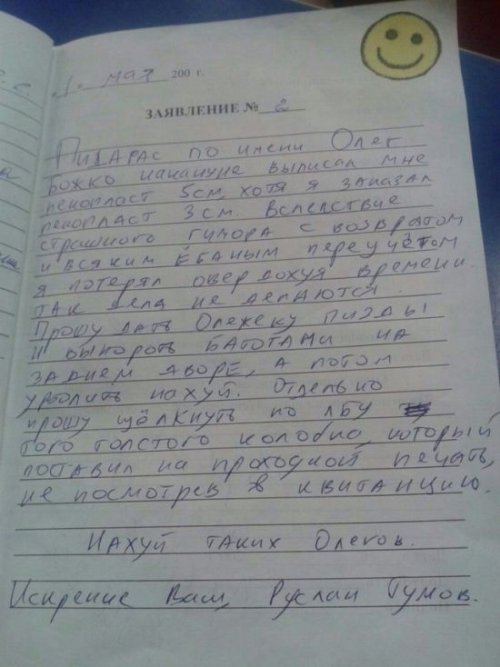 1. мая 200 г.
ЗАЯВЛЕНИЕ № 2
Пидарас по имени Олег
Божко накануне выписал мне
пенопласт 5см, хотя я заказал
пенопласт 3 см. Вследствие
страшного гимора с возвратом
и всяким ёбаным переучётом
я потерял овердохуя времени.
Так дела не делаются.
Прошу дать Олежеку пизды
и выпороть батогами на
заднем дворе, а потом
уволить нахуй. Отдельно
прошу щёлкнуть по лбу
того толстого колобка, который
поставил на проходной печать,
не посмотрев в квитанцию.
Нахуй таких Олегов.
Искрение Ваш, Руслан Гумов.